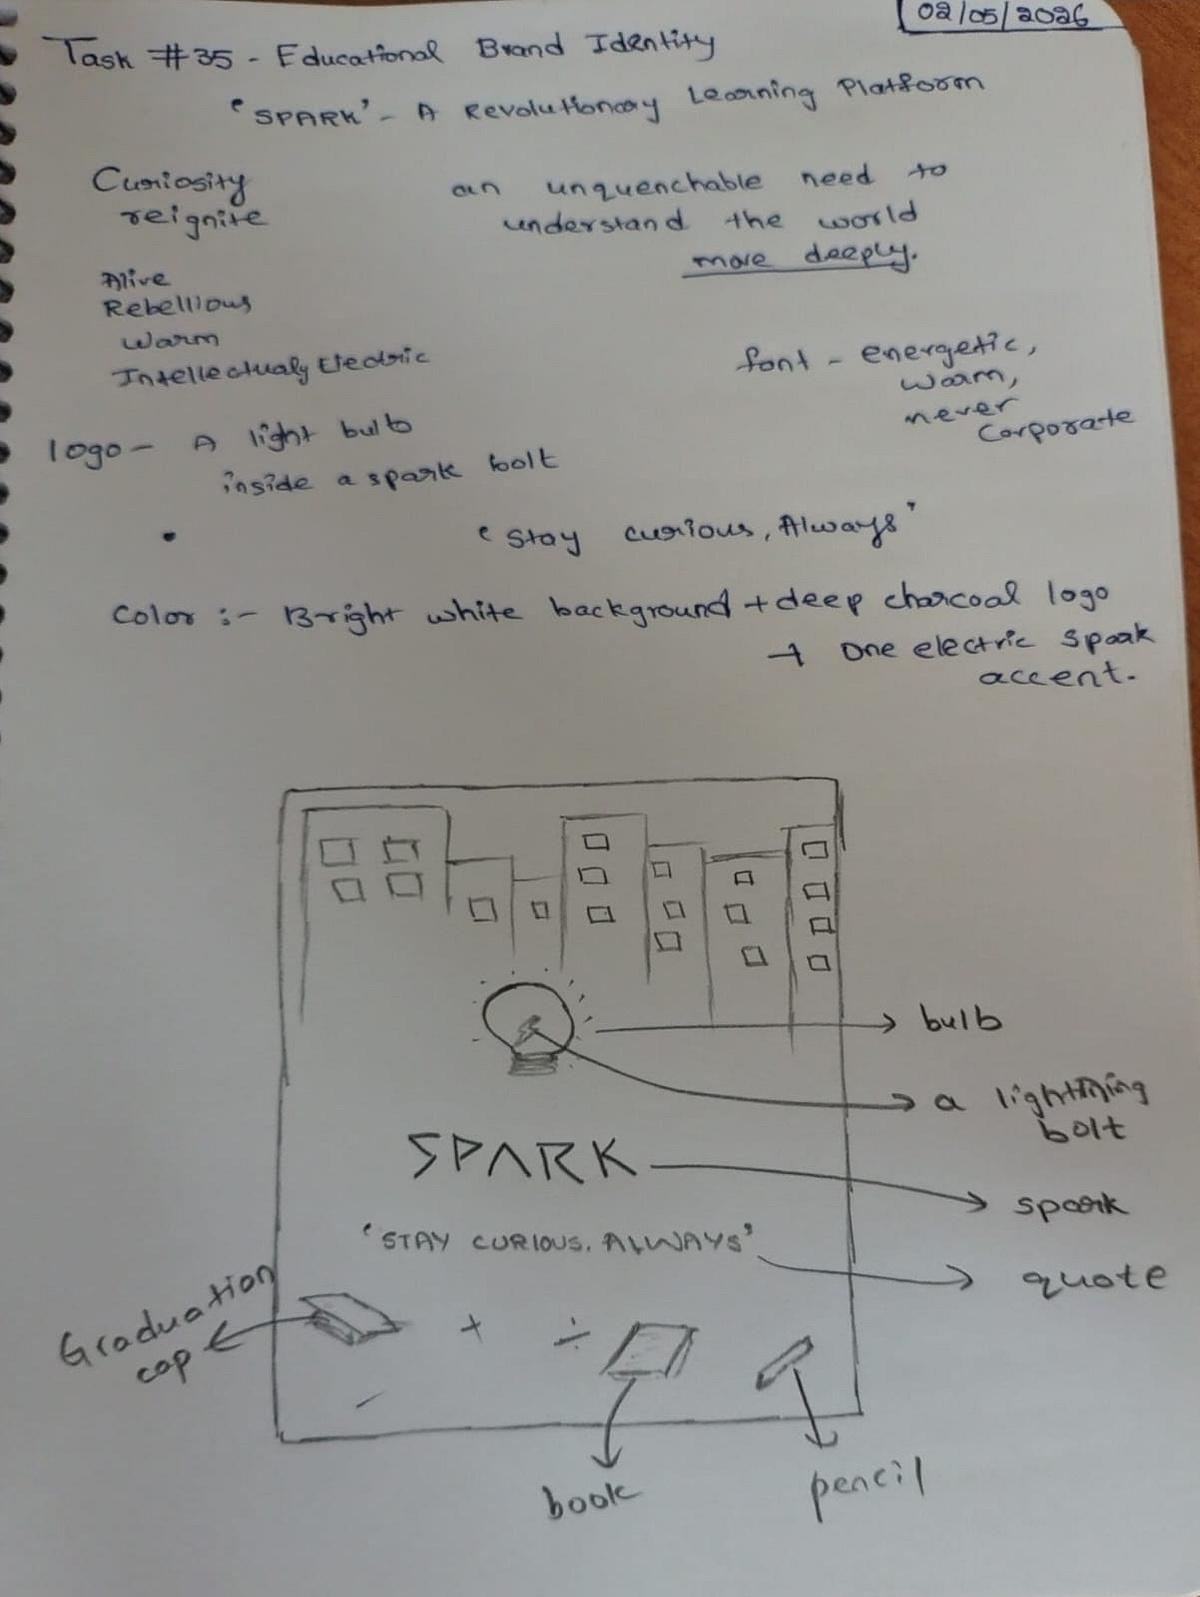 02/05/2026
Task #35 - Educational Brand Identity
'SPARK' - A Revolutionary Learning Platform
Curiosity
reignite
an unquenchable need to
understand the world
more deeply.
Alive
Rebellious
Warm
Intellectualy Electric
font - energetic,
warm,
never
corporate
logo - A light bulb
inside a spark bolt
'Stay curious, Always'
Color :- Bright white background + deep charcoal logo
+ One electric spark
accent.
bulb
a lightning
bolt
SPARK
spark
'STAY CURIOUS. ALWAYS'
quote
Graduation
cap
+ ÷
-
book
pencil